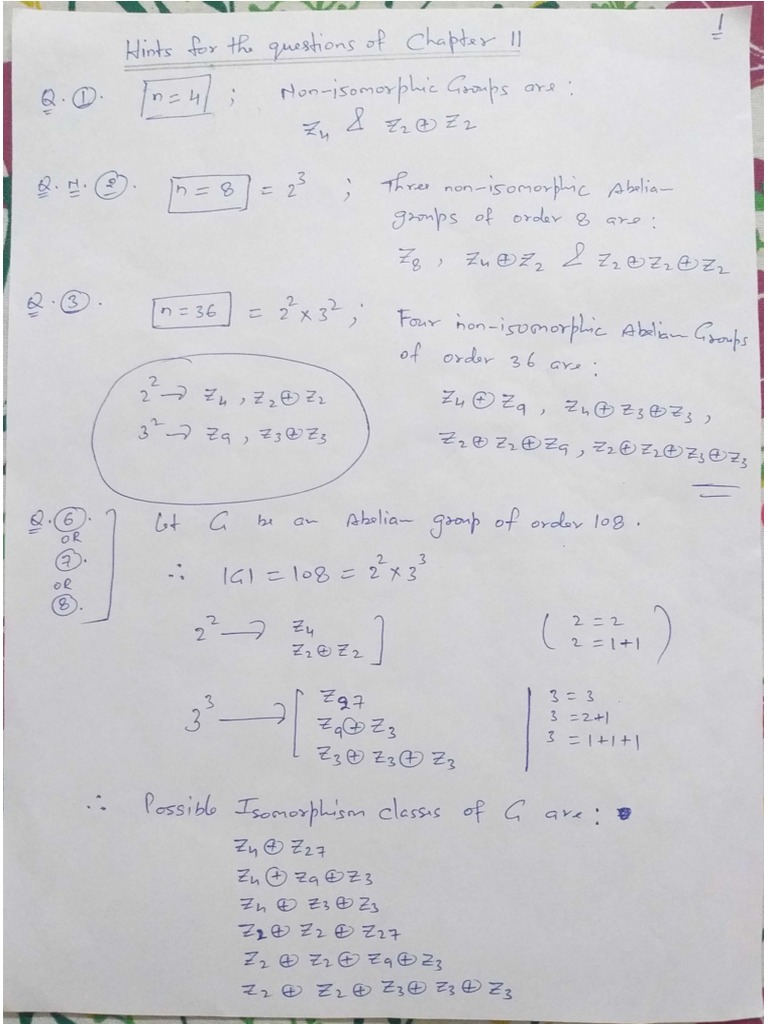 1
Hints for the questions of Chapter 11
Q. ①. n = 4 ; Non-isomorphic Groups are :
Z₄ & Z₂ ⊕ Z₂
Q. N. ②. n = 8 = 2³ ; Three non-isomorphic Abelian
groups of order 8 are :
Z₈ , Z₄ ⊕ Z₂ & Z₂ ⊕ Z₂ ⊕ Z₂
Q. ③. n = 36 = 2² × 3² ; Four non-isomorphic Abelian Groups
of order 36 are :
2² → Z₄ , Z₂ ⊕ Z₂
3² → Z₉ , Z₃ ⊕ Z₃
Z₄ ⊕ Z₉ , Z₄ ⊕ Z₃ ⊕ Z₃ ,
Z₂ ⊕ Z₂ ⊕ Z₉ , Z₂ ⊕ Z₂ ⊕ Z₃ ⊕ Z₃
Q. ⑥. Let G be an Abelian group of order 108 .
OR
⑦.
OR
⑧.
∴ |G| = 108 = 2² × 3³
2² → Z₄
Z₂ ⊕ Z₂
( 2 = 2
2 = 1+1 )
3³ → Z₂₇
Z₉ ⊕ Z₃
Z₃ ⊕ Z₃ ⊕ Z₃
3 = 3
3 = 2+1
3 = 1+1+1
∴ Possible Isomorphism classes of G are :
Z₄ ⊕ Z₂₇
Z₄ ⊕ Z₉ ⊕ Z₃
Z₄ ⊕ Z₃ ⊕ Z₃
Z₂ ⊕ Z₂ ⊕ Z₂₇
Z₂ ⊕ Z₂ ⊕ Z₉ ⊕ Z₃
Z₂ ⊕ Z₂ ⊕ Z₃ ⊕ Z₃ ⊕ Z₃